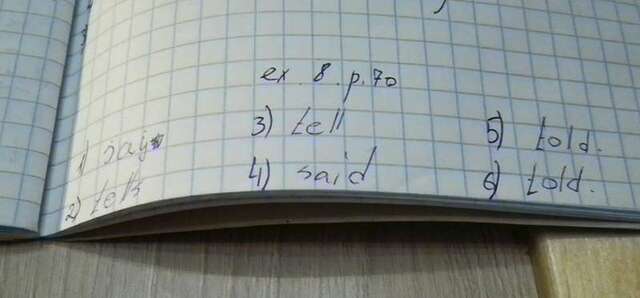 ex. 8. p. 70
1) say
2) tells
3) tell
4) said
5) told.
6) told.